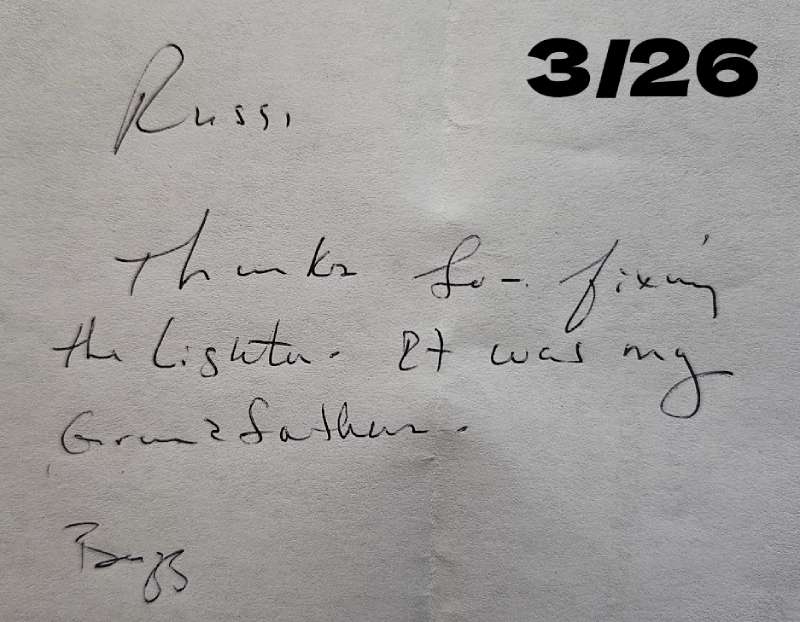 3/26
Russ,
Thanks for fixing
the Lighter. It was my
Grandfathers.